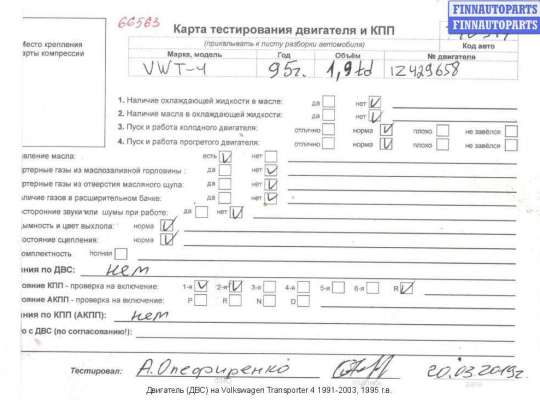 FINNAUTOPARTS
FINNAUTOPARTS
66583
Карта тестирования двигателя и КПП
(прикалывать к листу разборки автомобиля)
Код авто
Место крепления
карты компрессии
Марка, модель Год Объём № двигателя
VWT-4 95г. 1,9td 1Z429658
1. Наличие охлаждающей жидкости в масле: да нет
2. Наличие масла в охлаждающей жидкости: да нет
3. Пуск и работа холодного двигателя: отлично норма плохо не завёлся
4. Пуск и работа прогретого двигателя: отлично норма плохо не завёлся
авление масла: есть нет
ртерные газы из маслозаливной горловины: да нет
ртерные газы из отверстия масляного щупа: да нет
аличие газов в расширительном бачке: да нет
осторонние звуки или шумы при работе: да нет
ымность и цвет выхлопа: норма
остояние сцепления: норма
омплектность полная
ния по ДВС: нет
ояние КПП - проверка на включение: 1-я 2-я 3-я 4-я 5-я 6-я R
ояние АКПП - проверка на включение: P R N D
ния по КПП (АКПП): нет
о с ДВС (по согласованию!):
Тестировал: А.Опефиренко 20.03.2019г.
Двигатель (ДВС) на Volkswagen Transporter 4 1991-2003, 1995 г.в.